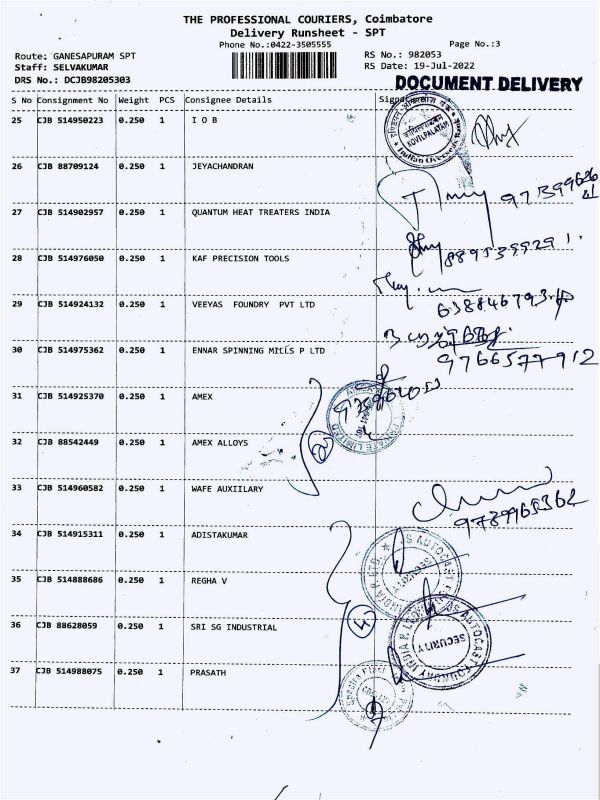 THE PROFESSIONAL COURIERS, Coimbatore
Delivery Runsheet - SPT
Phone No.:0422-3505555
Page No.:3
Route: GANESAPURAM SPT
RS No.: 982053
Staff: SELVAKUMAR
RS Date: 19-Jul-2022
DRS No.: DCJB98205303
DOCUMENT DELIVERY
S No Consignment No Weight PCS Consignee Details
25 CJB 514950223 0.250 1 I O B
KOVILPALAYAM
Indian Overseas
26 CJB 88709124 0.250 1 JEYACHANDRAN
27 CJB 514902957 0.250 1 QUANTUM HEAT TREATERS INDIA
28 CJB 514976050 0.250 1 KAF PRECISION TOOLS
29 CJB 514924132 0.250 1 VEEYAS FOUNDRY PVT LTD
30 CJB 514975362 0.250 1 ENNAR SPINNING MILLS P LTD
9766577912
31 CJB 514925370 0.250 1 AMEX
32 CJB 88542449 0.250 1 AMEX ALLOYS
2
33 CJB 514960582 0.250 1 WAFE AUXIILARY
34 CJB 514915311 0.250 1 ADISTAKUMAR
35 CJB 514888686 0.250 1 REGHA V
36 CJB 88628059 0.250 1 SRI SG INDUSTRIAL
4
SECURITY
37 CJB 514988075 0.250 1 PRASATH